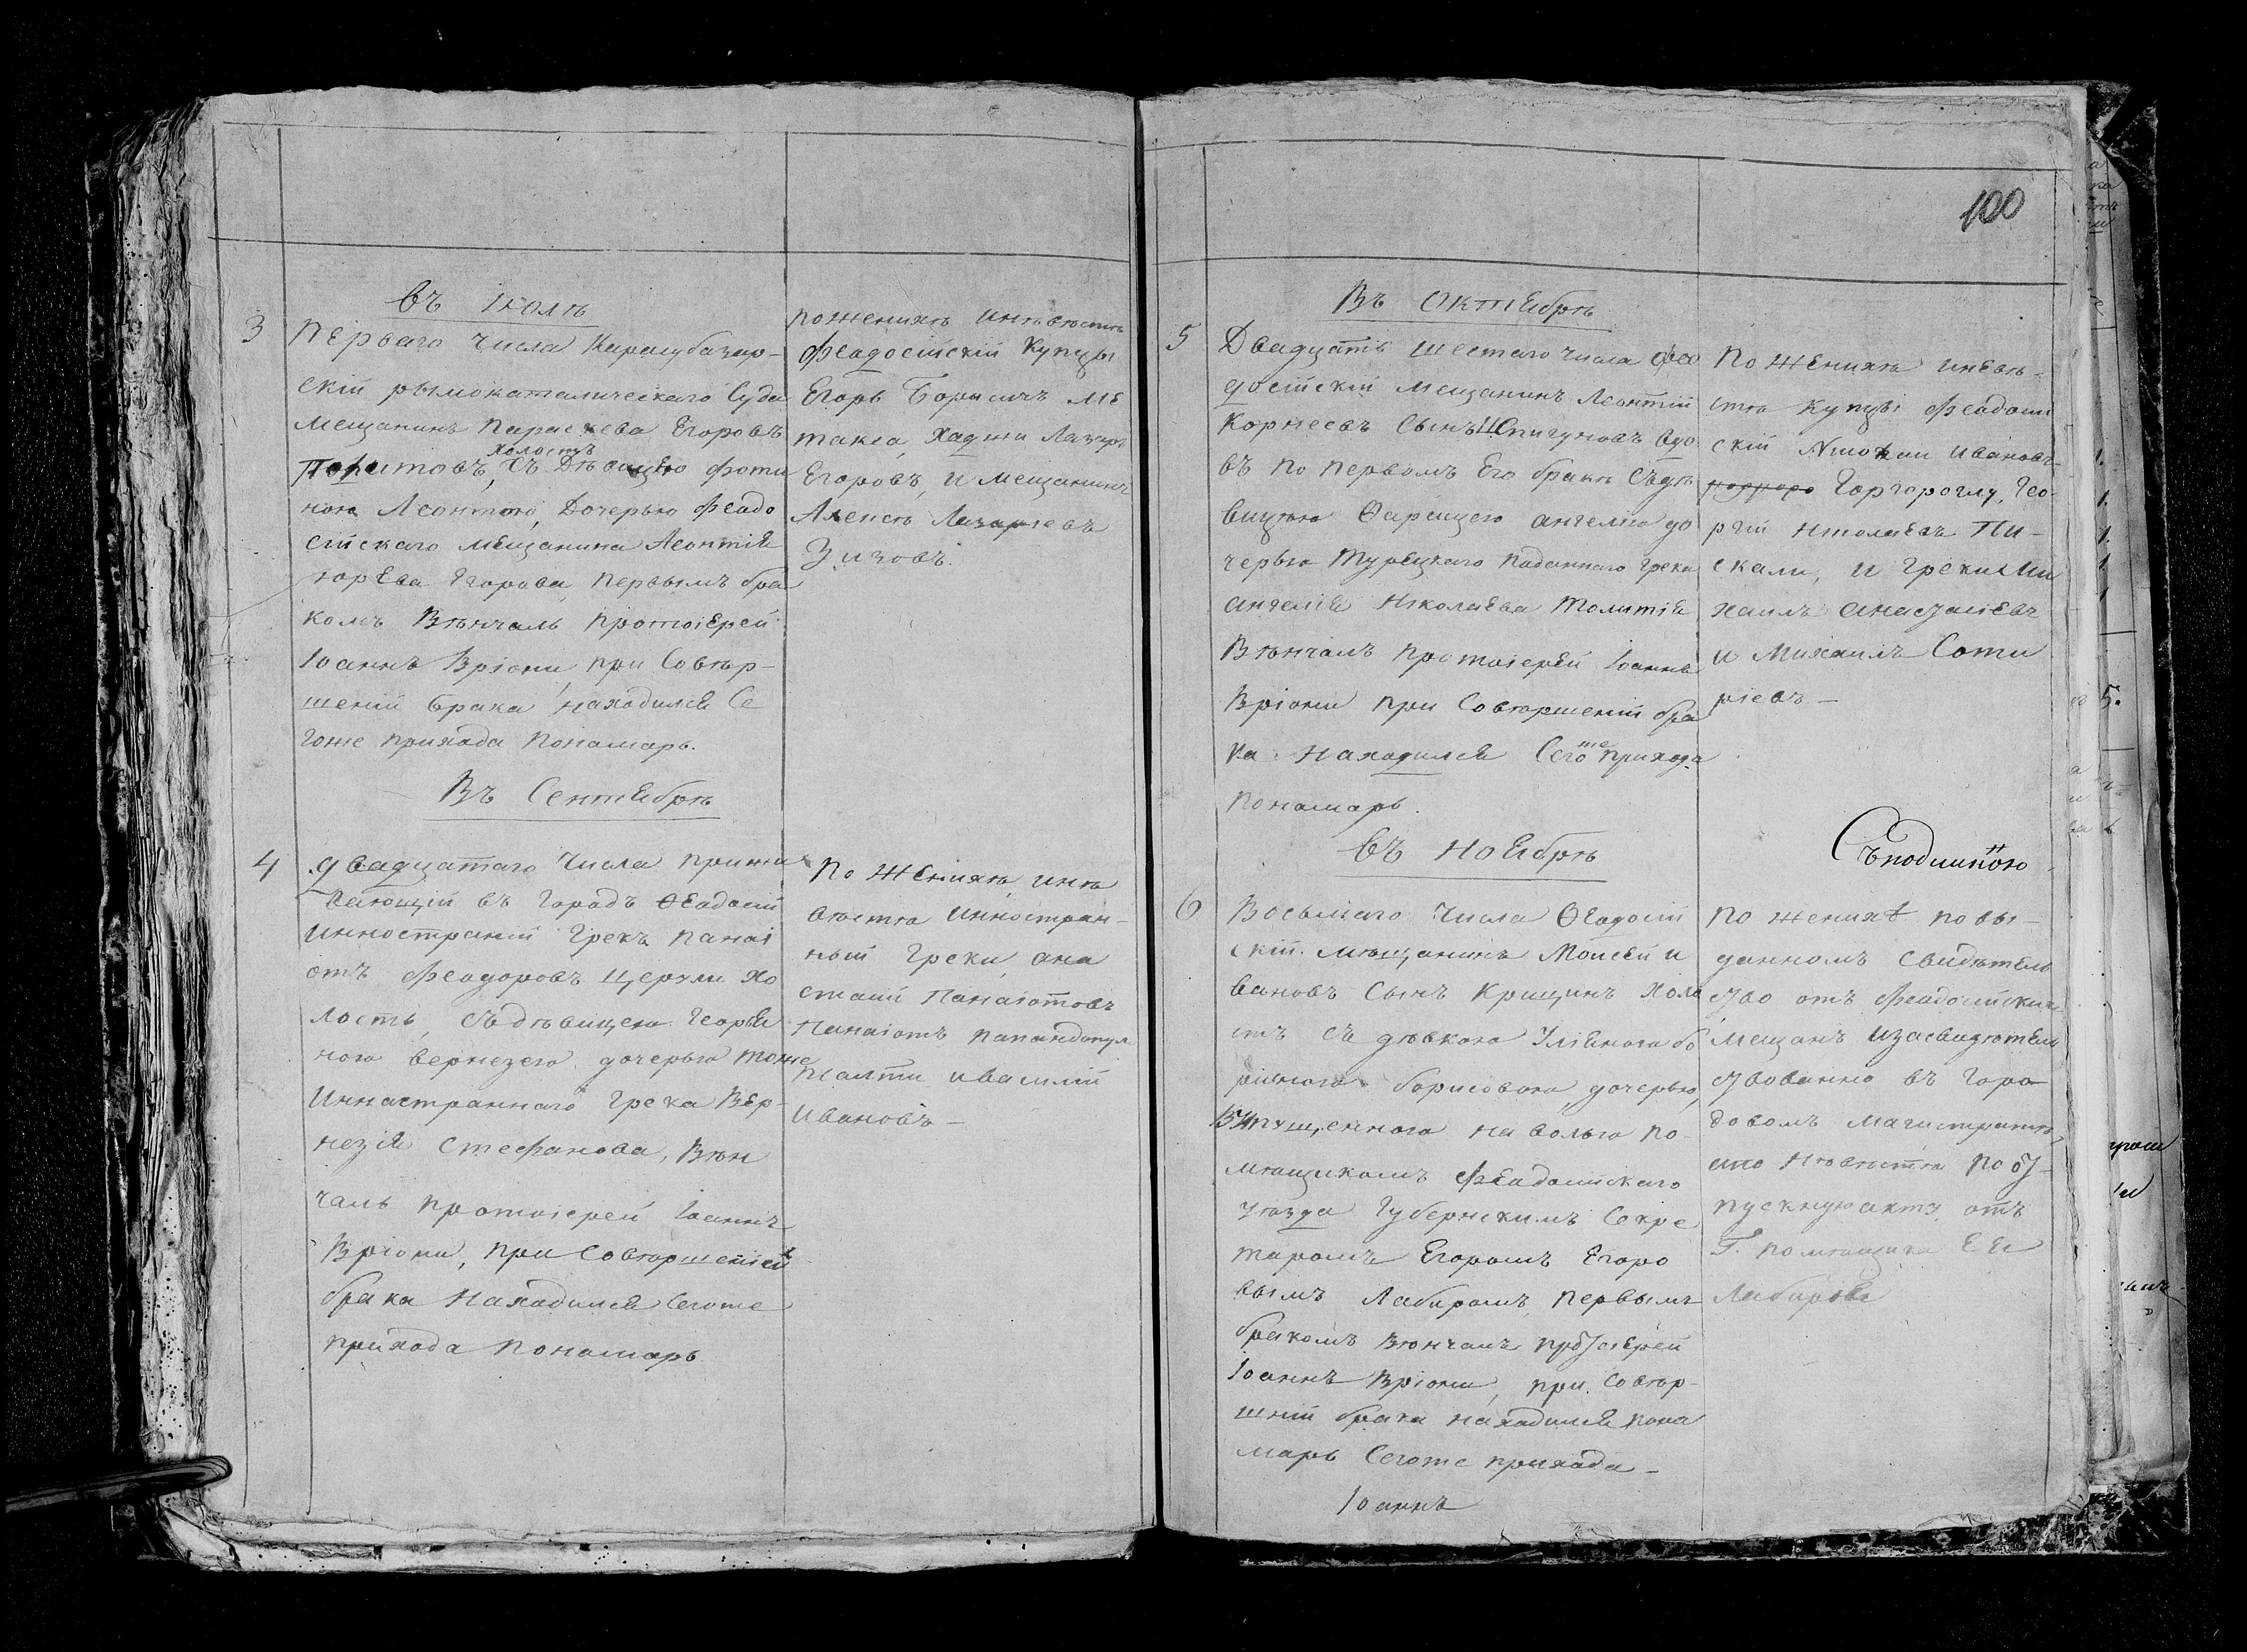 въ июлѣ
3
Перваго числа Карасубазар-
скій рымокаталическаго Суда
мещанинъ Параскева Егоровъ
холостъ
съ Дѣвицею Фоти
ною Леонтіею, Дочерью Феодо
сійскаго мещанина Леонтія
юрьева Егорова, первымъ бра
комъ Вѣнчалъ протоіерей
Іоаннъ Вріони, при Совѣр-
шеніи брака находился Се
гоже прихода Пономарь.
по женихѣ инѣвѣстѣ
Феадосійскій Купцы
Егоръ Борисичъ ме
такса, хаджи Лазарь
Егоровъ, и мещанинъ
Алексѣ Лазаріевъ
Зизовъ.
Въ Сентябрѣ
4
двадцатаго числа прожи
вающій въ городѣ Ѳеадосіи
инностраній Грекъ панаі
отъ Феодоровъ Церули хо
лостъ, съдѣвицею Георгія
ною вернезею дочерью тоже
Инностраннаго Грека Вер-
незія Стефанова, Вѣн
чалъ протоіерей Іоаннъ
Вріони, при Совѣршеніи
брака находился Сегоже
прихода Пономарь
по женихѣ инѣ
вѣстѣ Инностран-
ный Греки, ана
стасій Панаіотовъ
Панаіотъ Пападопул
псалти ивасилій
Ивановъ—
100
Въ Октябрѣ
5
Двадцать шестаго числа Фео
досійскій мещанинъ Леонтій
Корнеевъ Сынъ Шпигуновъ вдо
въ по первомъ Его бракѣ Съдѣ
вицею Ѳарицею ангеліо до
черью Турецкаго падданнаго грека
ангелія Николаева Толитія
Вѣнчалъ протоіерей Іоаннъ
Вріони при Совѣршеніи бра
ка находился Сего же прихода
Пономарь.
По женихѣ иневѣ-
стѣ купцы Феадоси
скій Николаи ивановъ
Горгороглу, Гео-
ргій Николаевъ Пи-
скали, и греки Ми
хаилъ анастасіевъ
и Михаилъ Соти
ріевъ—
Съподлинною
въ Ноябрѣ
6
Восьмаго числа Ѳеадосій
скій мѣщанинъ Моисей и
вановъ Сынъ Крицинъ холо
стъ съ дѣвкою Уліяною бо
рисною борисовою, дочерью,
Впущеннаго на волью по-
мѣщикомъ Феадосійскаго
уѣзда Губернскимъ Секре
таромъ Егоромъ Егоро
вымъ Лабиромъ, первымъ
бракомъ вѣнчалъ протоіерей
Іоаннъ Вріони, при Совѣр-
шній брака находился Поно
марь Сегоже прихода—
Іоаннъ
по женихѣ повы-
данномъ свидѣтель
ство отъ Феадосійскихъ
мещанъ изасвидѣтель
ствованно въ Горо
довомъ магистратѣ,
апо Нѣвѣстѣ по от-
пускную актъ, отъ
Г. помѣщика Ея
Лабирова